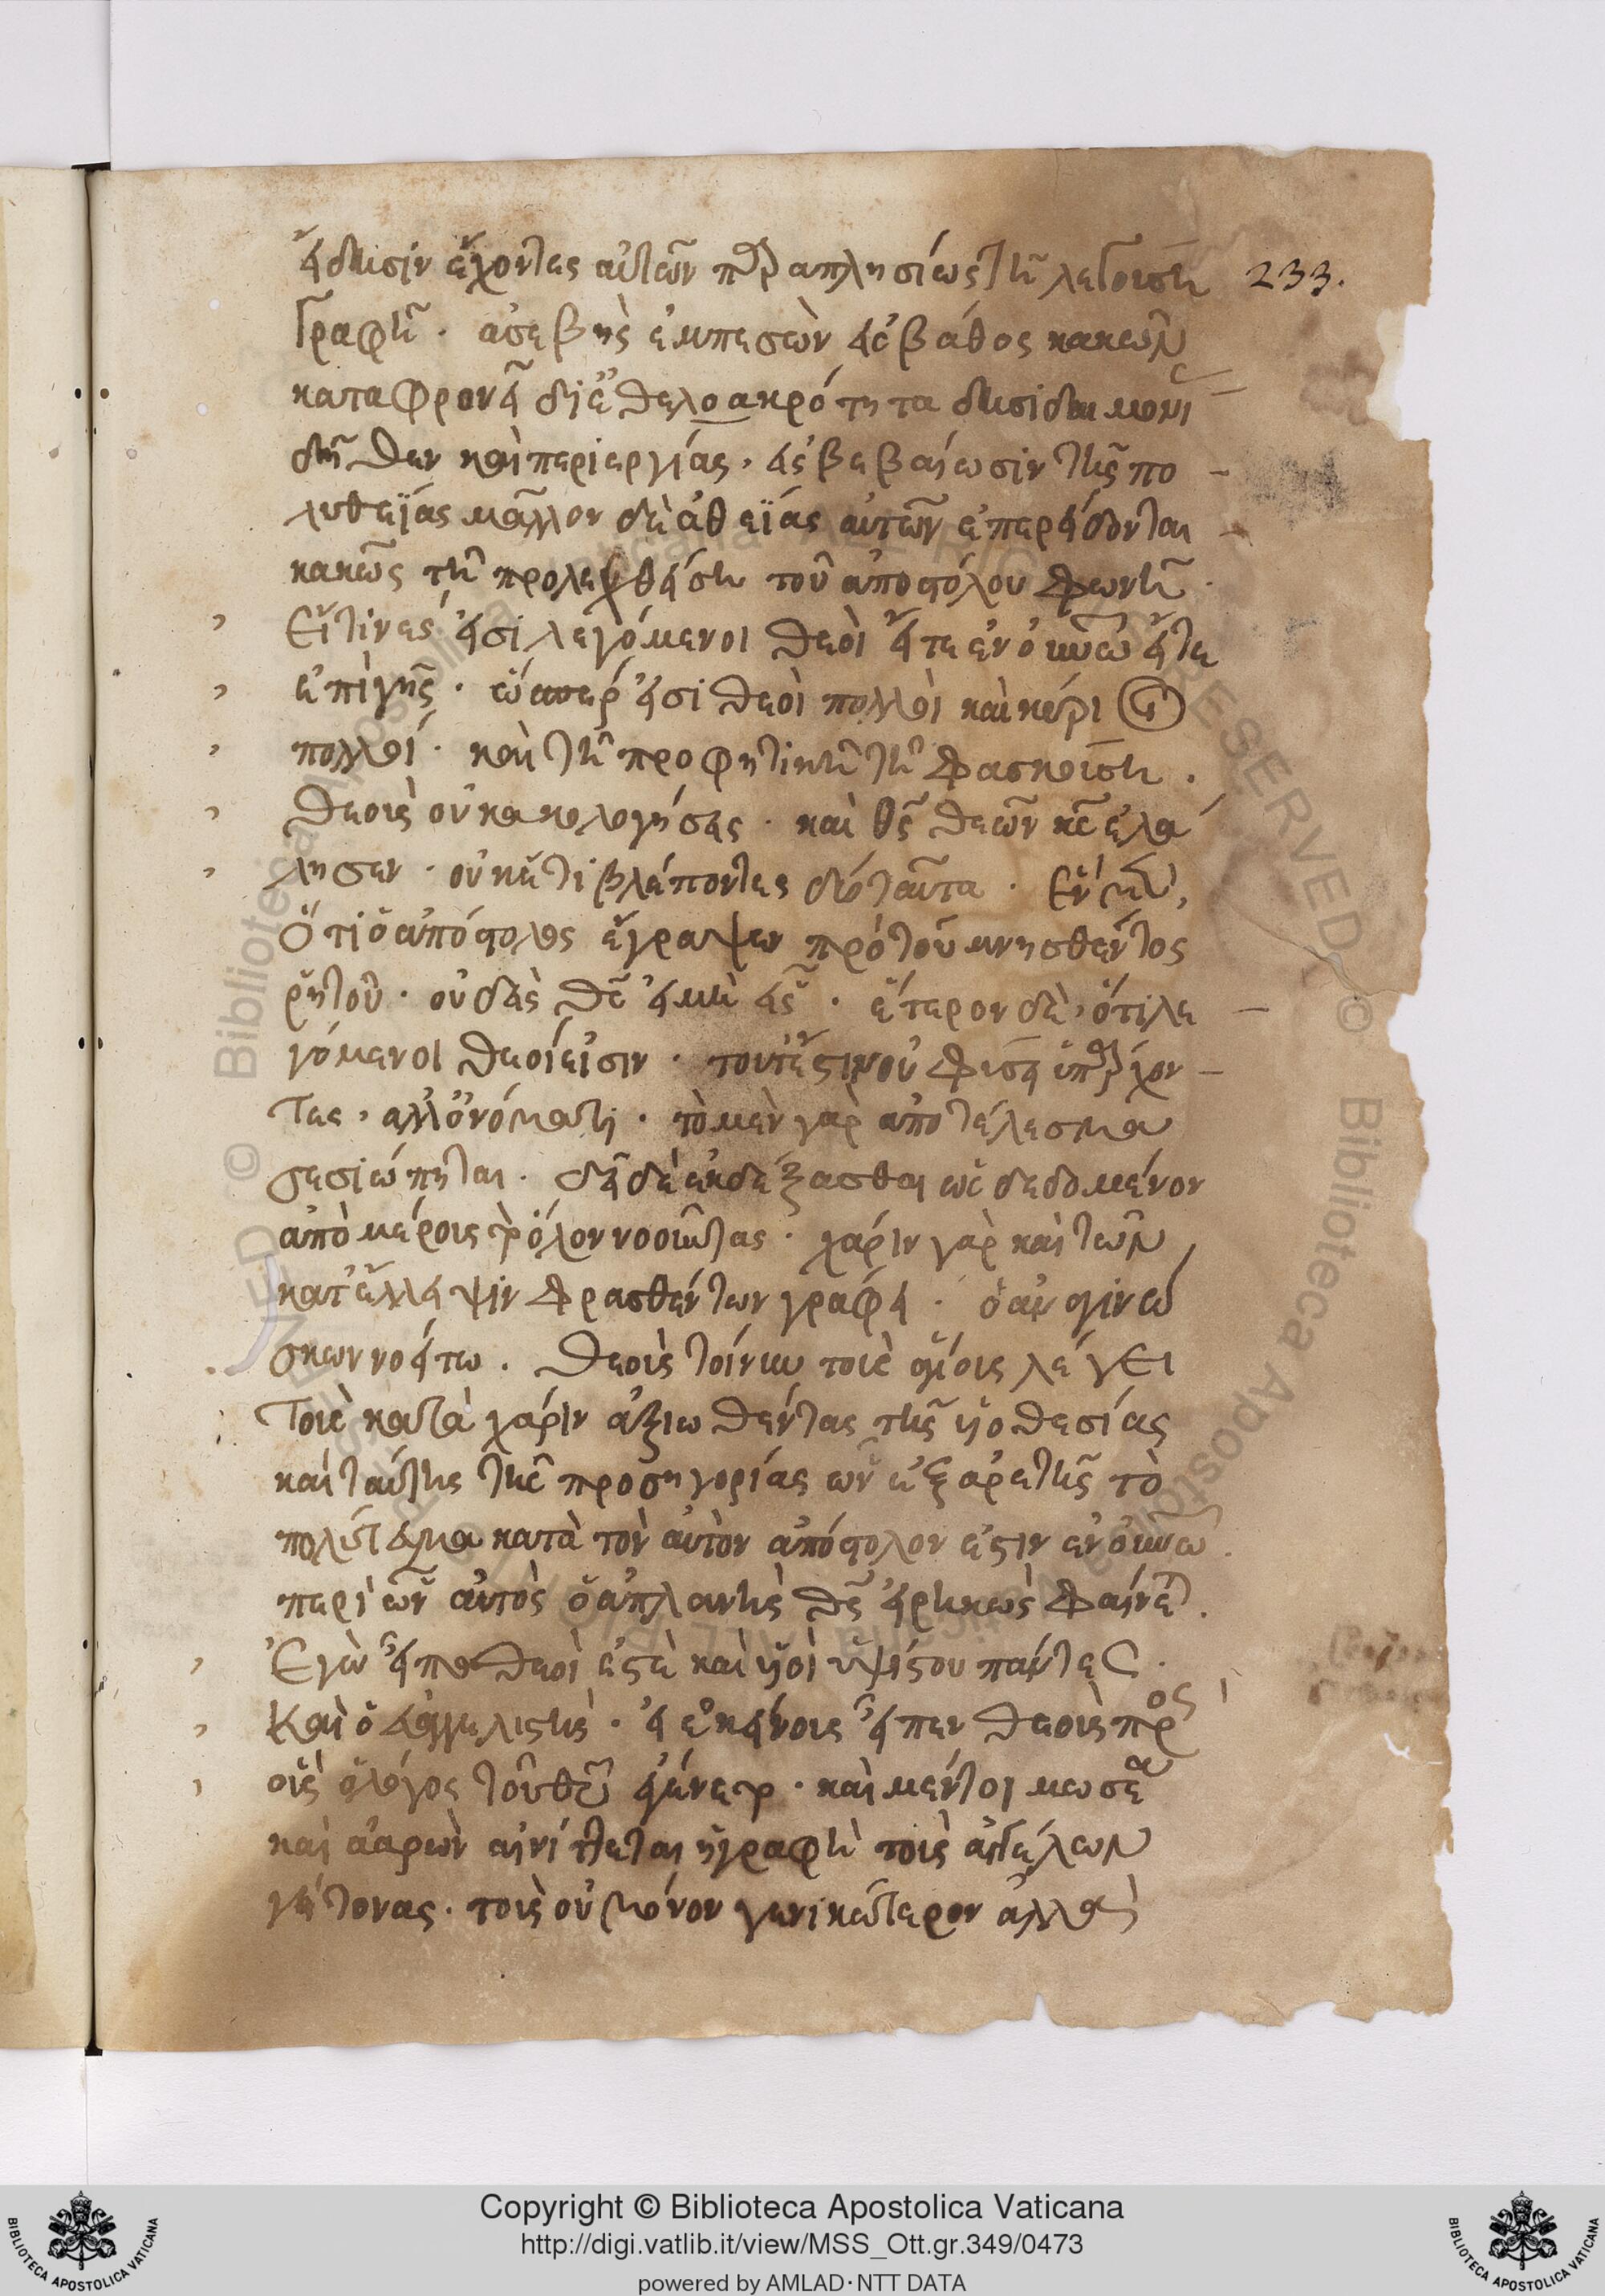 εἴδησιν ἔχοντες αὐτῶν παραπλησίως τῇ λεγούσῃ 233.
γραφῇ · ἀσεβὴς ἐμπεσὼν εἰς βάθος κακῶν
καταφρονεῖ δι' ἐθελοακρότητα δεισιδαιμονι
δῆθεν καὶ περιεργίας, εἰς βεβαίωσιν τῆς πο
λυθεΐας μᾶλλον δὲ ἀθεΐας αὐτῶν ἐπερείδονται
κακῶς τῇ προλεχθείσῃ τοῦ ἀποστόλου φωνῇ ·
Εἴ τινές εἰσι λεγόμενοι θεοὶ εἴτε ἐν οὐνῶ εἴτε
ἐπὶ γῆς · ὥσπερ εἰσὶ θεοὶ πολλοὶ καὶ κύριοι
πολλοί · καὶ τῇ προφητικῇ τῇ φασκούσῃ ·
θεοὺς οὐ κακολογήσεις · καὶ θς θεῶν κς ἐλά
λησεν · οὐκέτι βλέποντες δύο ταῦτα · ἓν μὲν,
ὅτι ὁ ἀπόστολος ἔγραψεν πρὸ τοῦ μνησθέντος
ῥητοῦ · οὐδεὶς θς εἰ μὴ εἷς · ἕτερον δὲ, ὅτι λε
γόμενοι θεοί εἰσιν · τουτέστιν οὐ φύσει ὑπάρχον
τες, ἀλλ' ὀνόματι · τὸ μὲν γὰρ ἀποτέλεσμα
σεσιώπηται · δεῖ δὲ ἐκδέξασθαι ὡς δεδομένον
ἀπὸ μέρους τὸ ὅλον νοοῦντας · χάριν γὰρ καὶ τῶν
κατ' ἔλλειψιν φρασθέντων γράφει · ὁ ἀναγινώ
σκων νοείτω · θεοὺς τοίνυν τοὺς ἁγίους λέγει
τοὺς κατὰ χάριν ἀξιωθέντας τῆς υἱοθεσίας
καὶ ταύτης τῆς προσηγορίας ὧν ἐξ ἀρετῆς τὸ
πολίτευμα κατὰ τὸν αὐτὸν ἀπόστολον ἐστιν ἐν οὐνῶ ·
περὶ ὧν αὐτὸς ὁ ἀπλανὴς θς εἰρηκὼς φαίνεται ·
Ἐγὼ εἶπα θεοὶ ἐστὲ καὶ υἱοὶ ὑψίστου πάντες ·
Καὶ ὁ εὐαγγελιστὴς · εἰ ἐκείνους εἶπεν θεοὺς πρὸς
οὓς ὁ λόγος τοῦ θυ ἐγένετο · καὶ μέντοι μωσέα
καὶ ἀαρὼν αἰνίττεται ἡ γραφὴ τοὺς ἀγγέλων
γείτονας · τοὺς οὐ μόνον γενικώτερον ἀλλὰ
Copyright © Biblioteca Apostolica Vaticana
http://digi.vatlib.it/view/MSS_Ott.gr.349/0473
powered by AMLAD·NTT DATA
BIBLIOTECA APOSTOLICA VATICANA
BIBLIOTECA APOSTOLICA VATICANA